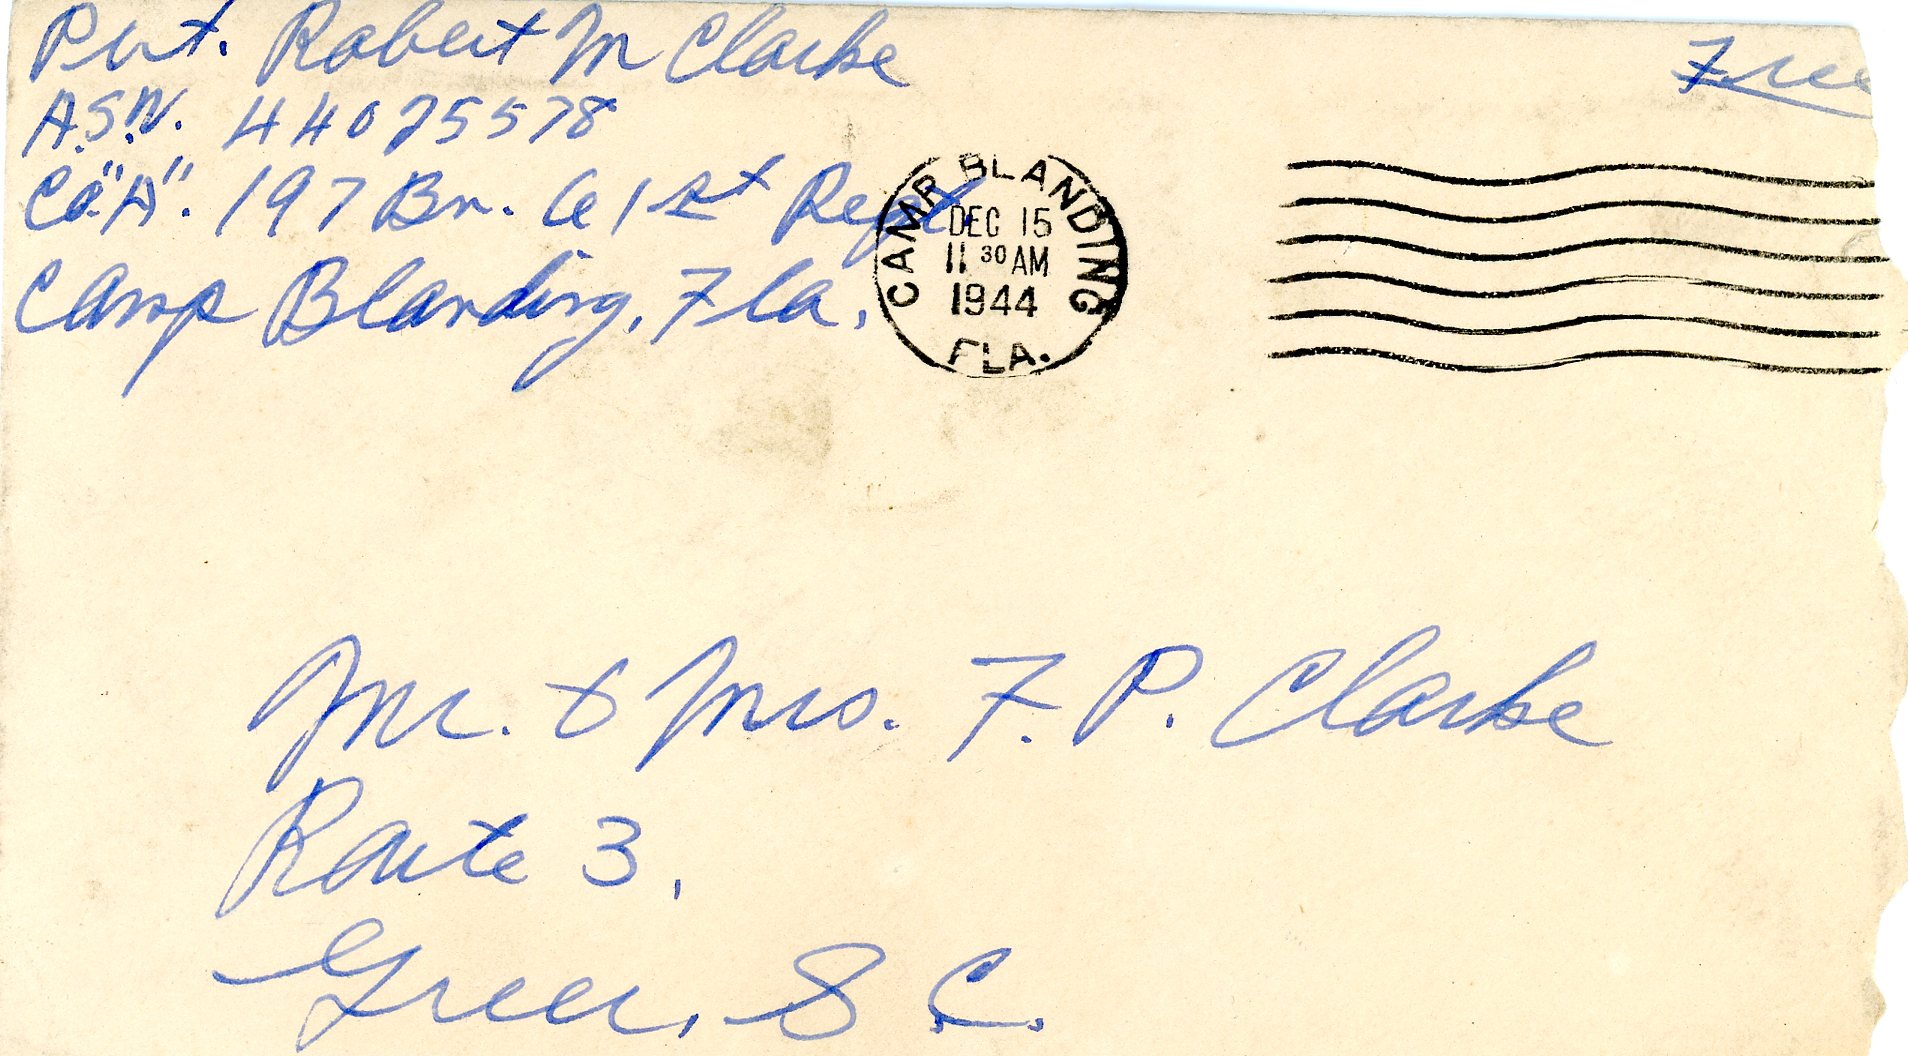 Pvt. Robert M Clarke
A.S.N. 44025578
Co. "A". 197 Bn. 61st Regt.
Camp Blanding, Fla.
Free
CAMP BLANDING
DEC 15
11 30 AM
1944
FLA.
Mr. & Mrs. F. P. Clarke
Route 3,
Greer, S.C.